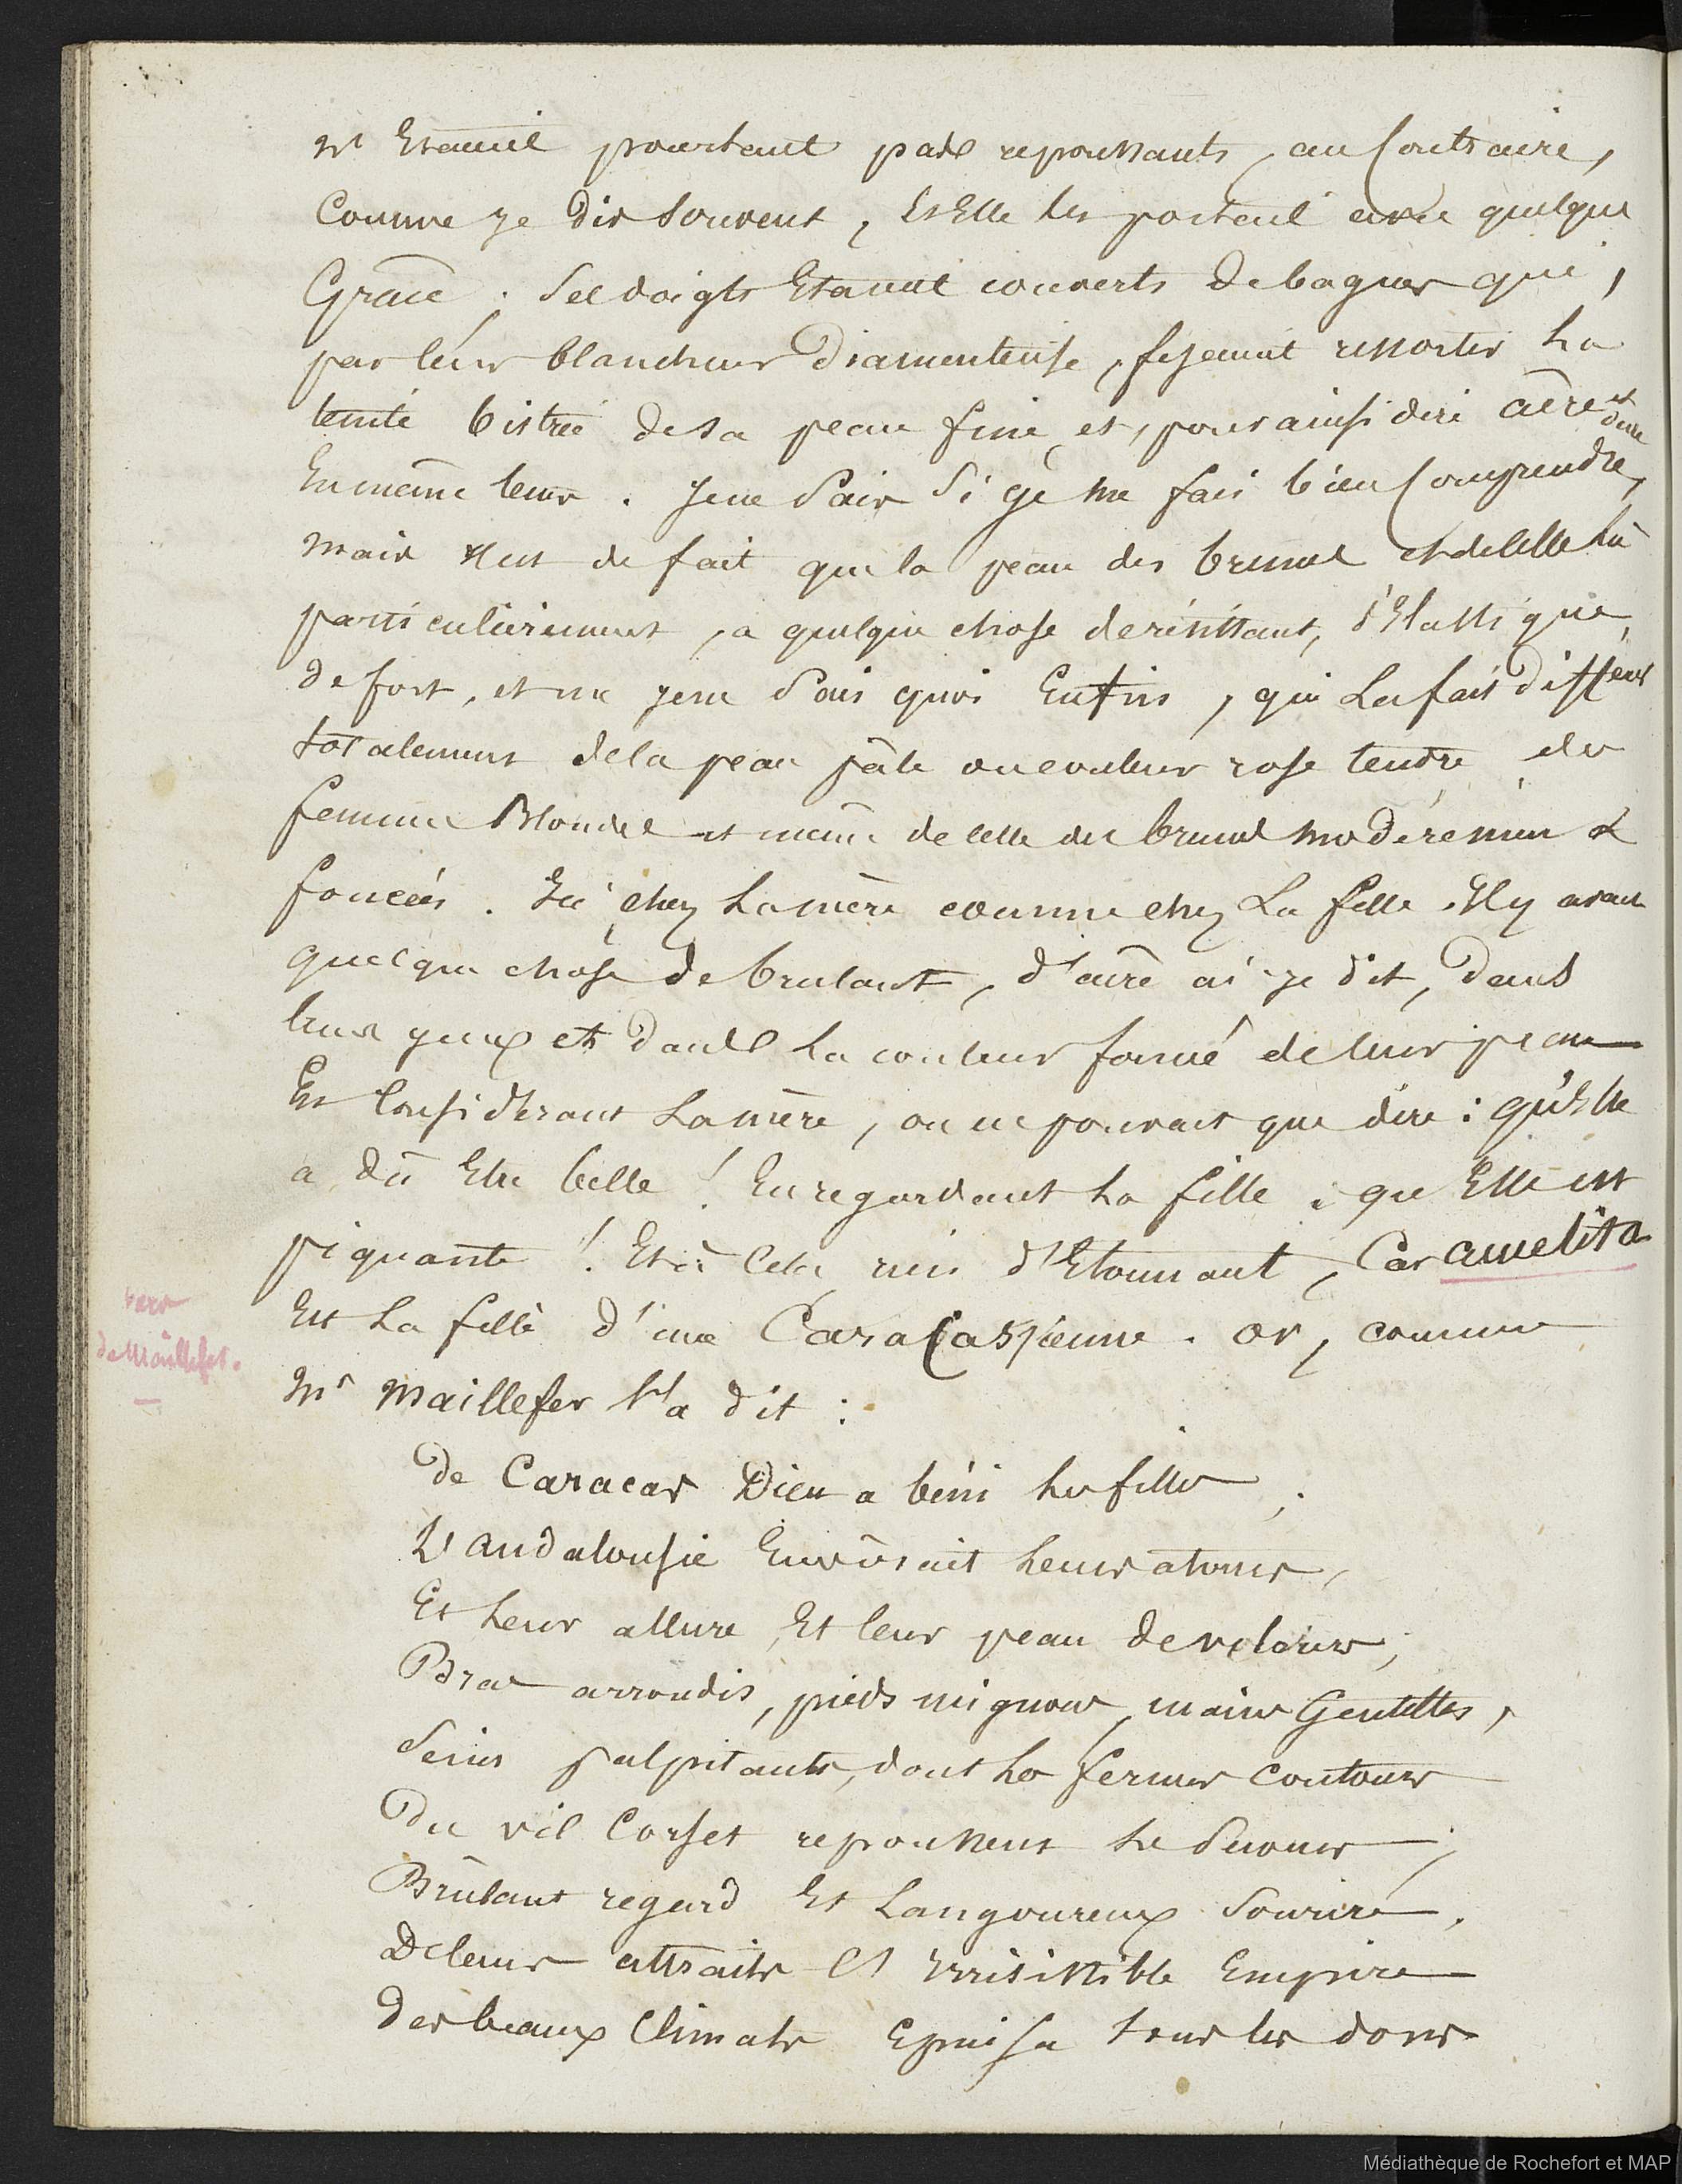 n'Etaient pourtant pas repoussants, au Contraire,
Comme je dis souvent, Et Elle les portait avec quelque
Grâce. Ses doigts Etaient couverts de bagues qui,
par leur blancheur Diamenteuse, fesaient ressortir la
teinte bistrée de sa peau fine et, pour ainsi dire âcre et dure
En même tems. Je ne Sais Si je me fais bien Comprendre,
mais Il est de fait que la peau des brunes et de Celle là
particulièrement, a quelque chose de résistant, d'Elastique,
de fort, et un je ne Sais quoi Enfin, qui La fait différer
totalement de la peau pâle ou couleur rose tendre des
femmes Blondes et même de celle des brunes modérément
foncées. Ici chez La mère comme chez La fille. Il y avait
quelque chose de brulant, d'âcre ai-je dit, Dans
leurs yeux et Dans La couleur foncé de leur peau
En Considérant La mère, on ne pouvait que dire : qu'Elle
a dû Etre belle ! En regardant La fille : que Elle est
piquante ! Et à Cela rien d'Etonnant, Car Camelita
Est La fille d'une Caracaspienne. Or, comme
vers
de Maillefer.
Mr Maillefer l'a dit :
De Caracas Dieu a béni les filles ;
L'andalousie Envîrait Leurs atours,
Et Leur allure, Et leur peau de velours ;
Bras arrondis, pieds mignons, mains Gentilles,
Seins palpitants, dont les fermes contours
Du vil Corset repoussent le Secours ;
Brûlant regard Et Langoureux Sourire,
De leurs attraits Et Irrésistible Empire
Des beaux Climats Epuisa tous les dons
Médiathèque de Rochefort et MAP